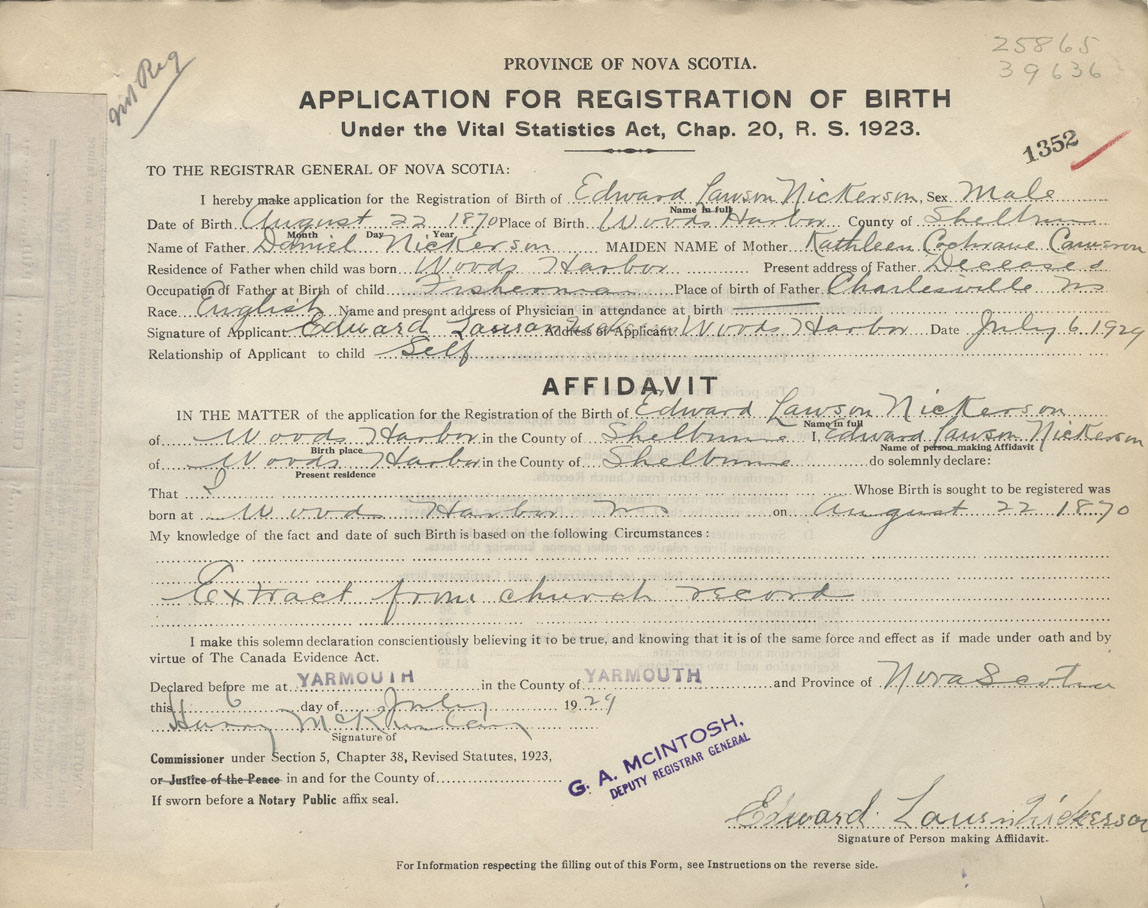 25865
39636
not Reg
PROVINCE OF NOVA SCOTIA.
APPLICATION FOR REGISTRATION OF BIRTH
Under the Vital Statistics Act, Chap. 20, R. S. 1923.
1352
TO THE REGISTRAR GENERAL OF NOVA SCOTIA:
I hereby make application for the Registration of Birth of Edward Lawson Nickerson, Sex Male
Name in full
Date of Birth August 22 1870 Place of Birth Woods Harbor County of Shelburne
Month Day Year
Name of Father Daniel Nickerson MAIDEN NAME of Mother Kathleen Cochrane Cameron
Residence of Father when child was born Woods Harbor Present address of Father Deceased
Occupation of Father at Birth of child Fisherman Place of birth of Father Charlesville NS
Race English Name and present address of Physician in attendance at birth
Signature of Applicant Edward Lawson Nickerson Address of Applicant Woods Harbor Date July 6 1929
Relationship of Applicant to child Self
AFFIDAVIT
IN THE MATTER of the application for the Registration of the Birth of Edward Lawson Nickerson
Name in full
of Woods Harbor in the County of Shelburne I, Edward Lawson Nickerson
Birth place Name of person making Affidavit
of Woods Harbor in the County of Shelburne do solemnly declare:
Present residence
That I Whose Birth is sought to be registered was
born at Woods Harbor NS on August 22 1870
My knowledge of the fact and date of such Birth is based on the following Circumstances :
Extract from church record
I make this solemn declaration conscientiously believing it to be true, and knowing that it is of the same force and effect as if made under oath and by
virtue of The Canada Evidence Act.
Declared before me at YARMOUTH in the County of YARMOUTH and Province of Nova Scotia
this 6 day of July 1929
Signature of
Commissioner under Section 5, Chapter 38, Revised Statutes, 1923,
or Justice of the Peace in and for the County of
If sworn before a Notary Public affix seal.
G. A. MCINTOSH,
DEPUTY REGISTRAR GENERAL
Edward Lawson Nickerson
Signature of Person making Affidavit.
For Information respecting the filling out of this Form, see Instructions on the reverse side.